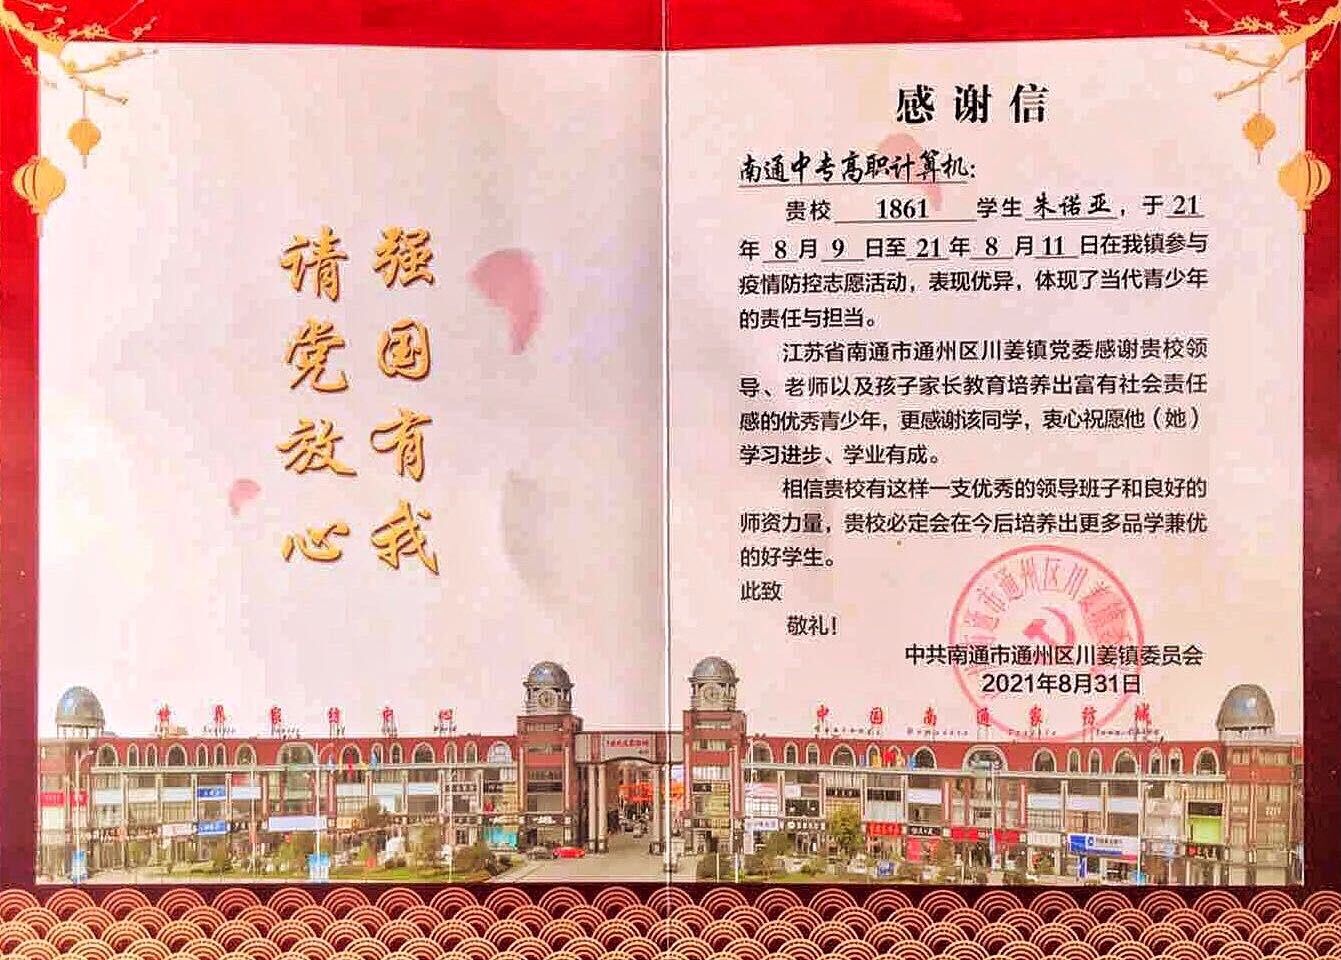 请党放心
强国有我
感谢信
南通中专高职计算机：
贵校 1861 学生 朱诺亚，于 21
年 8 月 9 日至 21 年 8 月 11 日在我镇参与
疫情防控志愿活动，表现优异，体现了当代青少年
的责任与担当。
江苏省南通市通州区川姜镇党委感谢贵校领
导、老师以及孩子家长教育培养出富有社会责任
感的优秀青少年，更感谢该同学，衷心祝愿他（她）
学习进步、学业有成。
相信贵校有这样一支优秀的领导班子和良好的
师资力量，贵校必定会在今后培养出更多品学兼优
的好学生。
此致
敬礼！
中共南通市通州区川姜镇委员会
2021年8月31日
世界家纺中心
中国南通家纺城